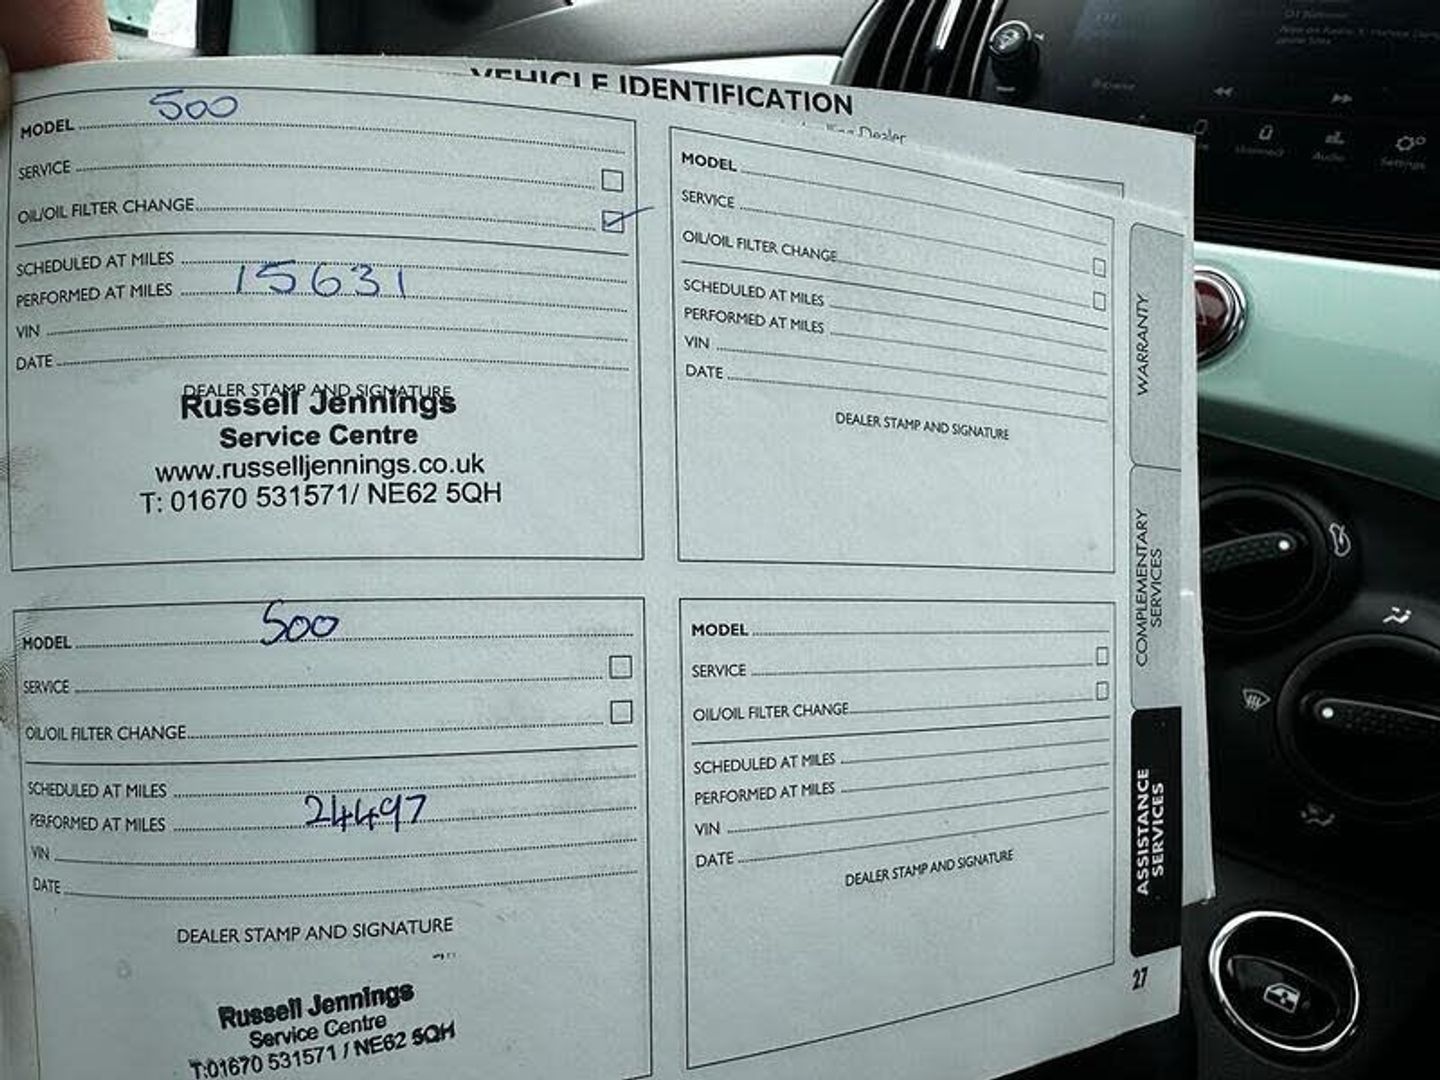 VEHICLE IDENTIFICATION
Dealer
MODEL 500
SERVICE
OIL/OIL FILTER CHANGE
SCHEDULED AT MILES
PERFORMED AT MILES 15631
VIN
DATE
DEALER STAMP AND SIGNATURE
Russell Jennings
Service Centre
www.russelljennings.co.uk
T: 01670 531571/ NE62 5QH
MODEL 500
SERVICE
OIL/OIL FILTER CHANGE
SCHEDULED AT MILES
PERFORMED AT MILES 24497
VIN
DATE
DEALER STAMP AND SIGNATURE
Russell Jennings
Service Centre
T:01670 531571 / NE62 5QH
MODEL
SERVICE
OIL/OIL FILTER CHANGE
SCHEDULED AT MILES
PERFORMED AT MILES
VIN
DATE
DEALER STAMP AND SIGNATURE
MODEL
SERVICE
OIL/OIL FILTER CHANGE
SCHEDULED AT MILES
PERFORMED AT MILES
VIN
DATE
DEALER STAMP AND SIGNATURE
WARRANTY
COMPLEMENTARY
SERVICES
ASSISTANCE
SERVICES
27
Browse
Audio
Settings